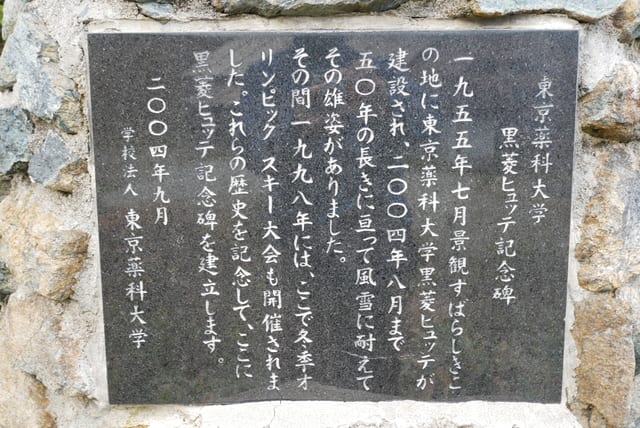 東京薬科大学
黒菱ヒュッテ記念碑
一九五五年七月景観すばらしきこ
の地に東京薬科大学黒菱ヒュッテが
建設され、二〇〇四年八月まで
五〇年の長きに亘って風雪に耐えて
その雄姿がありました。
その間一九九八年には、ここで冬季オ
リンピックスキー大会も開催されま
した。これらの歴史を記念して、ここに
黒菱ヒュッテ記念碑を建立します。
二〇〇四年九月
学校法人 東京薬科大学